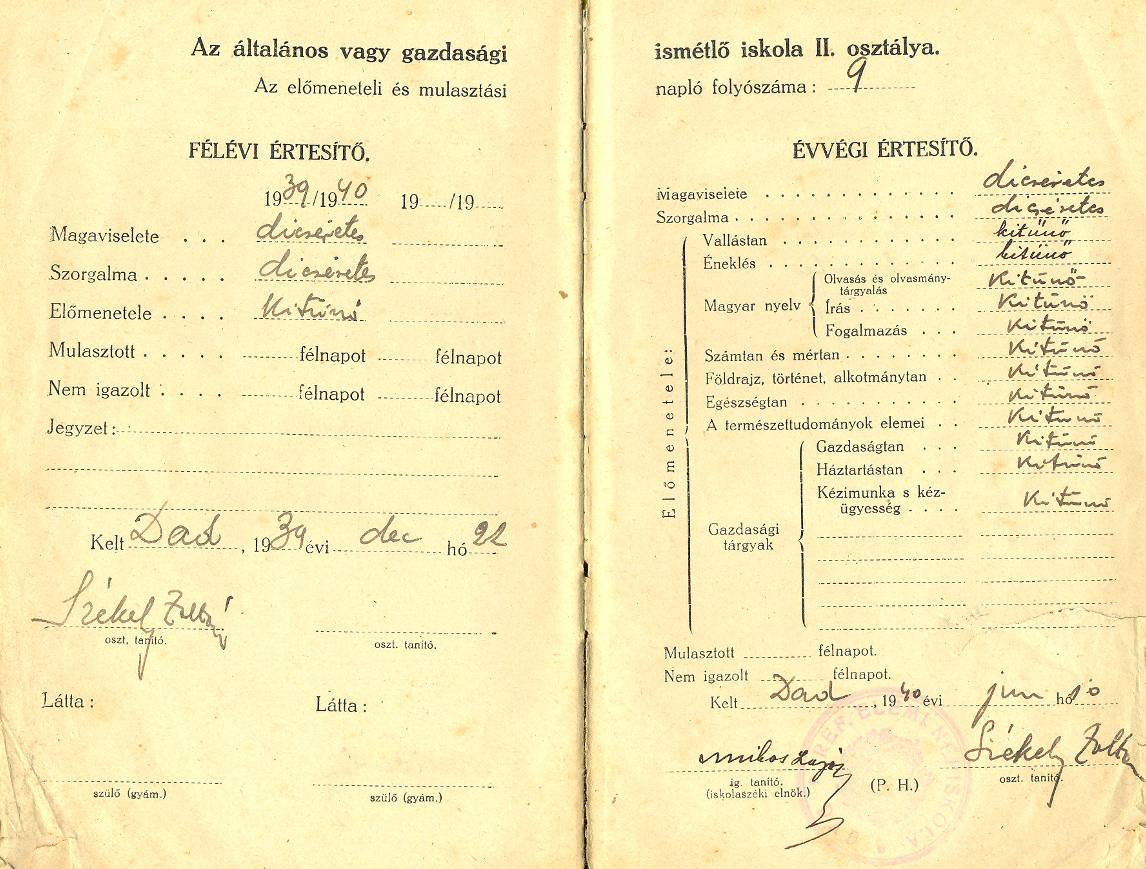 Az általános vagy gazdasági
Az előmeneteli és mulasztási
FÉLÉVI ÉRTESÍTŐ.
1939/1940 19...../19.....
Magaviselete . . . dicséretes
Szorgalma . . . . . dicséretes
Előmenetele . . . . Kitűnő
Mulasztott . . . . . félnapot félnapot
Nem igazolt . . . . félnapot félnapot
Jegyzet:
Kelt Dad, 1939 évi dec hó 22
Székely Zoltán
oszt. tanító. oszt. tanító.
Látta : Látta :
szülő (gyám.) szülő (gyám.)
ismétlő iskola II. osztálya.
napló folyószáma : 9
ÉVVÉGI ÉRTESÍTŐ.
Magaviselete . . . . . . . . . . . . . dicséretes
Szorgalma . . . . . . . . . . . . . . . dicséretes
Előmenetele:
Vallástan . . . . . . . . . . . . kitűnő
Éneklés . . . . . . . . . . . . . kitűnő
Magyar nyelv
Olvasás és olvasmány-
tárgyalás Kitűnő
Írás . . . . . . . Kitűnő
Fogalmazás . . . Kitűnő
Számtan és mértan . . . . . . . . Kitűnő
Földrajz, történet, alkotmánytan . . Kitűnő
Egészségtan . . . . . . . . . . . Kitűnő
A természettudományok elemei . . Kitűnő
Gazdasági
tárgyak
Gazdaságtan . . . Kitűnő
Háztartástan . . . Kitűnő
Kézimunka s kéz-
ügyesség . . . . Kitűnő
Mulasztott félnapot.
Nem igazolt félnapot.
Kelt Dad, 1940 évi jun hó 10
Székely Zoltán
ig. tanító. (P. H.) oszt. tanító.
(iskolaszéki elnök.)
REF. ELEMI ISKOLA